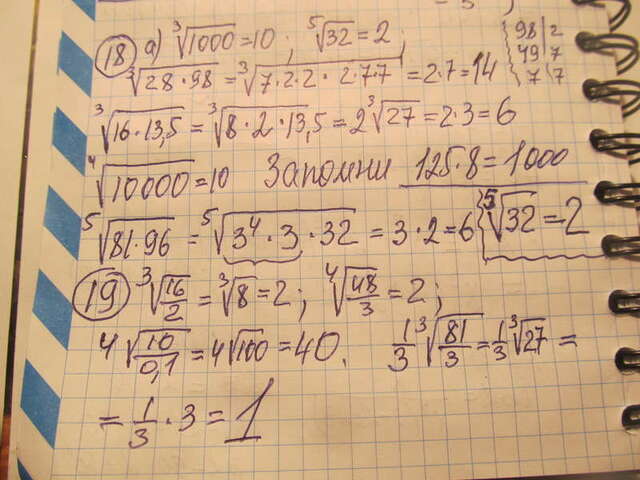 (18) а) ∛1000 = 10 ; ⁵√32 = 2 ;
∛(28·98) = ∛(7·2·2·2·7·7) = 2·7 = 14
98 | 2
49 | 7
7 | 7
∛(16·13,5) = ∛(8·2·13,5) = 2∛27 = 2·3 = 6
⁴√10000 = 10 Запомни 125·8 = 1000
⁵√(81·96) = ⁵√(3⁴·3·32) = 3·2 = 6 ⁵√32 = 2
(19) ∛(16/2) = ∛8 = 2 ; ⁴√(48/3) = 2 ;
4√(10/0,1) = 4√100 = 40. 1/3 ∛(81/3) = 1/3 ∛27 =
= 1/3 · 3 = 1